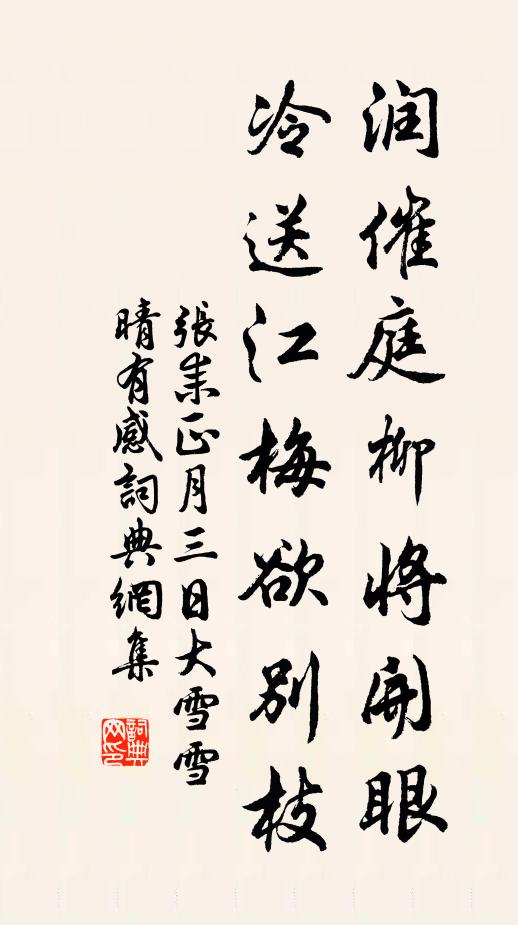 润催庭柳将开眼
冷送江梅欲别枝
張耒正月三日大雪雪
晴有感詞典網集
詞典
网印